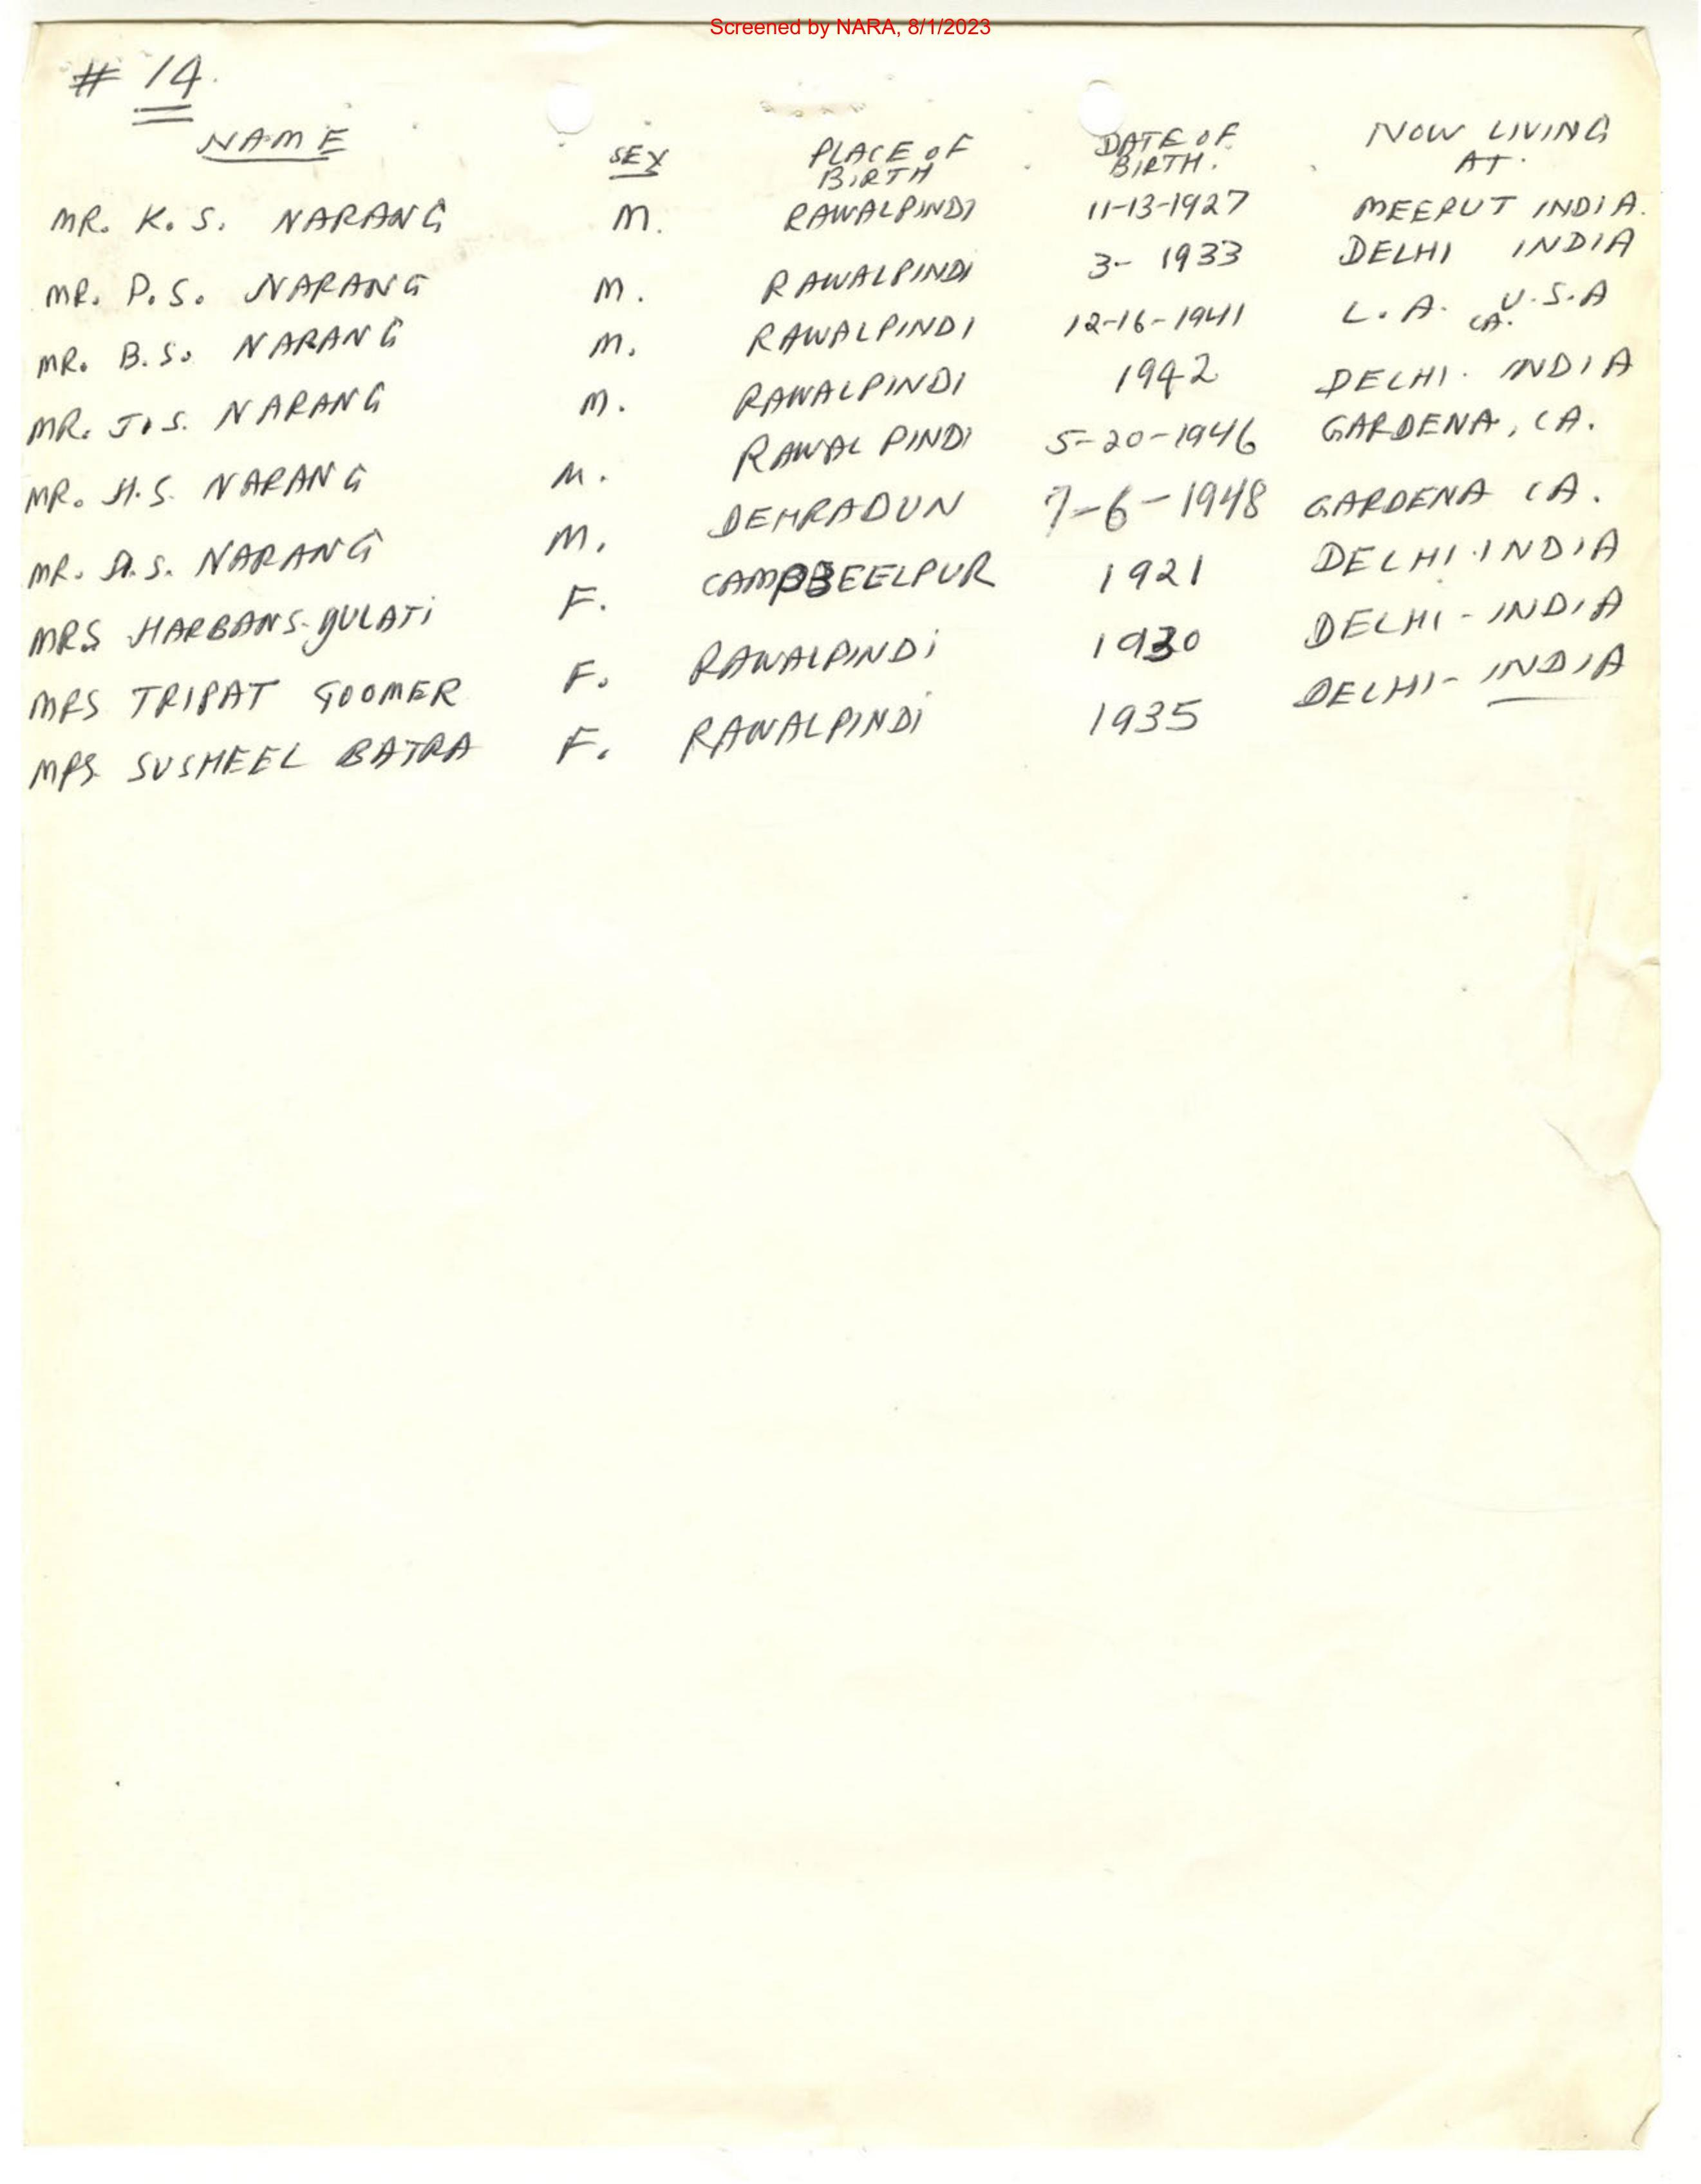 Screened by NARA, 8/1/2023
# 14.
NAME SEX PLACE OF BIRTH DATE OF BIRTH. NOW LIVING AT.
MR. K. S. NARANG M. RAWALPINDI 11-13-1927 MEERUT INDIA.
MR. P. S. NARANG M. RAWALPINDI 3- 1933 DELHI INDIA
MR. B. S. NARANG M. RAWALPINDI 12-16-1941 L. A. CA. U.S.A
MR. J. S. NARANG M. RAWALPINDI 1942 DELHI. INDIA
MR. H. S. NARANG M. RAWALPINDI 5-20-1946 GARDENA, CA.
MR. A. S. NARANG M. DEHRADUN 7-6-1948 GARDENA CA.
MRS HARBANS GULATI F. CAMPBEELPUR 1921 DELHI INDIA
MRS TRIPAT GOOMER F. RAWALPINDI 1930 DELHI - INDIA
MRS SUSHEEL BATRA F. RAWALPINDI 1935 DELHI - INDIA